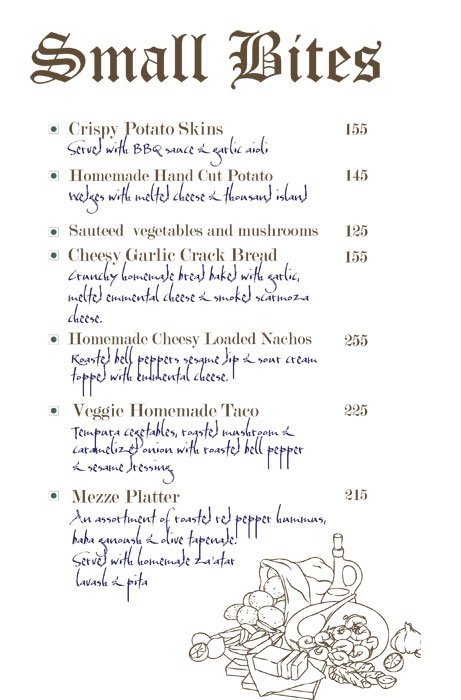 Small Bites
Crispy Potato Skins 155
Served with BBQ sauce & garlic aioli
Homemade Hand Cut Potato 145
Wedges with melted cheese & thousand island
Sauteed vegetables and mushrooms 125
Cheesy Garlic Crack Bread 155
Crunchy homemade bread baked with garlic,
melted emmental cheese & smoked scarmoza
cheese.
Homemade Cheesy Loaded Nachos 255
Roasted bell peppers sesame dip & sour cream
topped with emmental cheese.
Veggie Homemade Taco 225
Tempura cegetables, roasted mushroom &
caramelized onion with roasted bell pepper
& sesame dressing
Mezze Platter 215
An assortment of roasted red pepper hummus,
baba ganoush & olive tapenade.
Served with homemade za'atar
lavash & pita